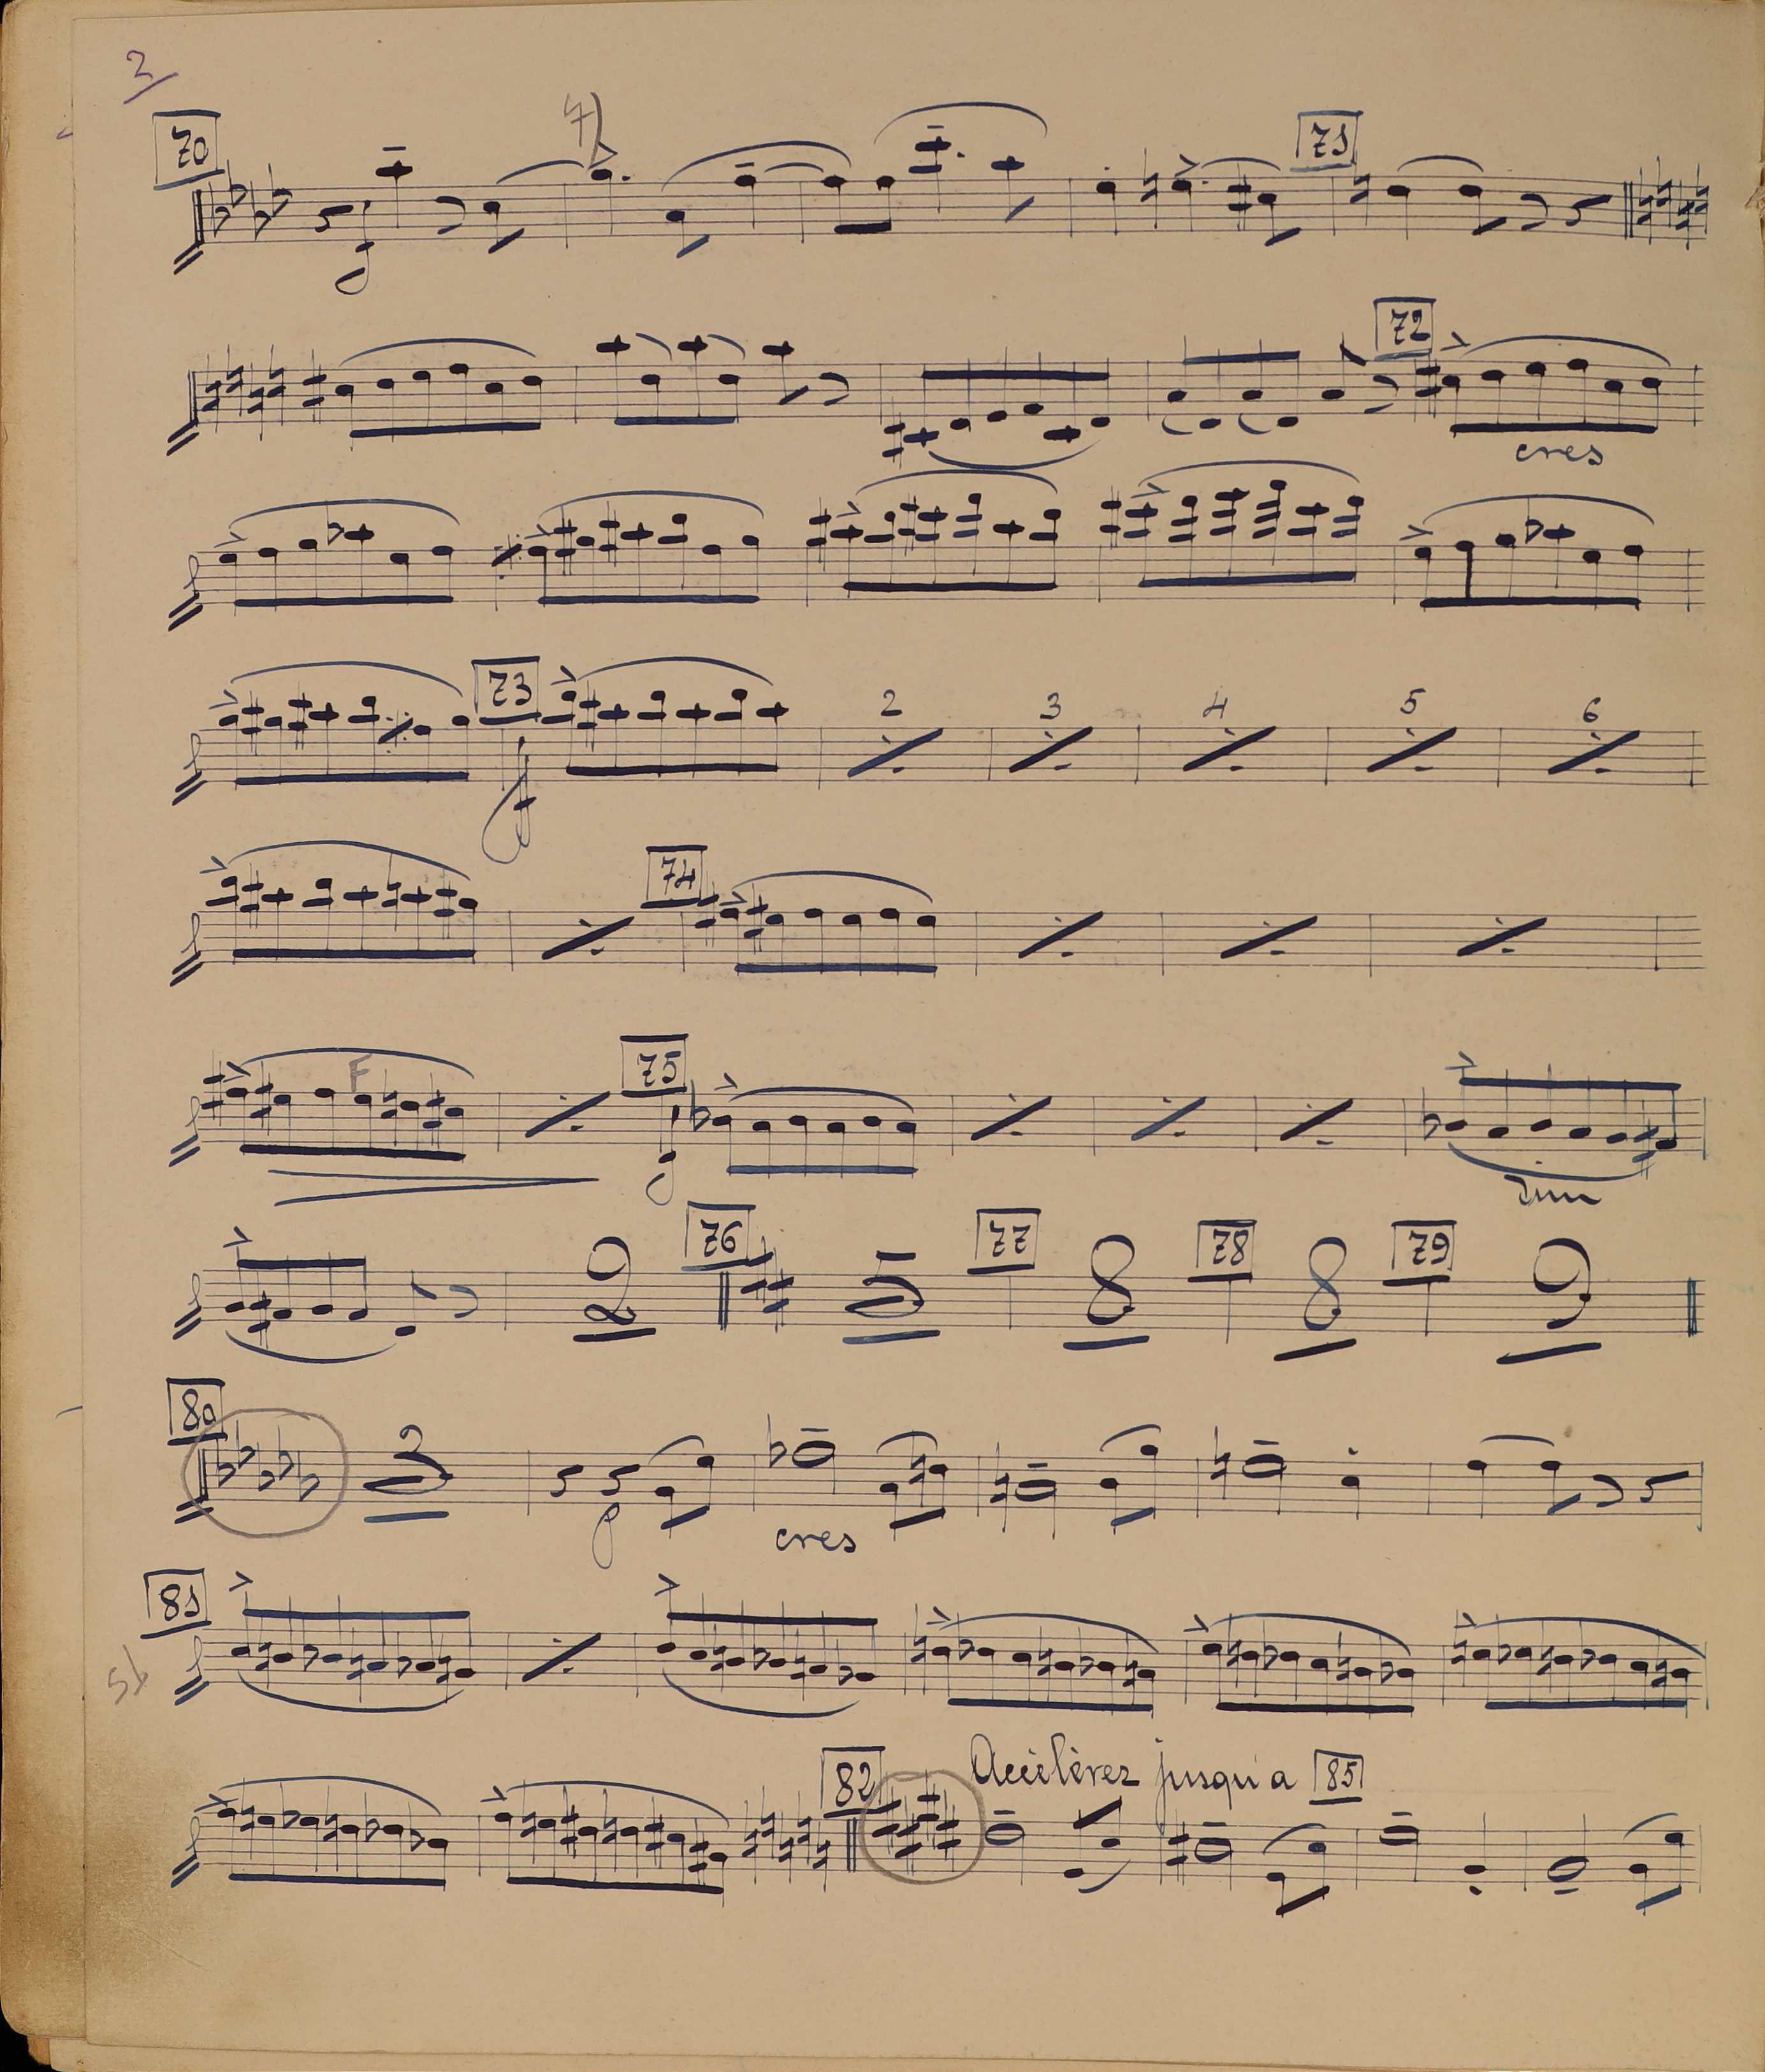 2
70 4 71
72
cres
73 2 3 4 5 6
ff
74
F 75
f
dim
2 76 5 77 8 78 8 79 9
80
2
p cres
81
5b
82 Accélérez jusqu'a 85